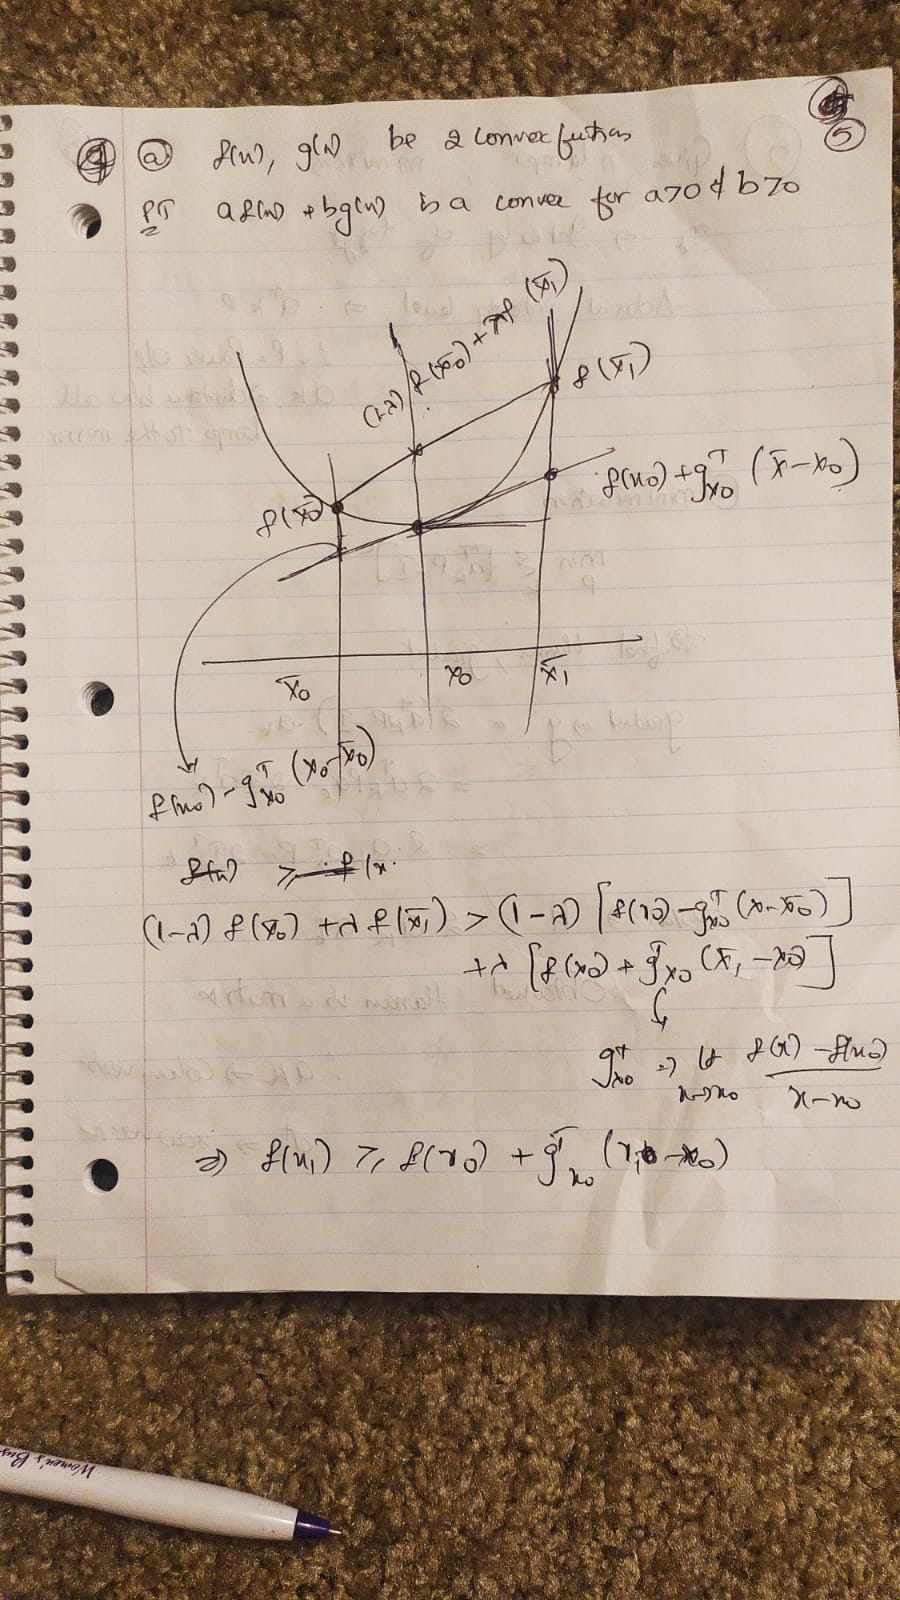 5
ⓐ f(x), g(x) be 2 convex functions
PT af(x) + bg(x) is a convex for a>0 & b>0
(1-λ) f(x̄₀) + λf (x̄₁)
f(x̄₁)
f(x₀) + gᵀₓ₀ (x̄ - x₀)
f(x̄₀)
x̄₀ x₀ x̄₁
f(x₀) - gᵀₓ₀ (x₀ - x̄₀)
f(x) ≥ f(x
(1-λ) f(x̄₀) + λ f(x̄₁) > (1-λ) [f(x₀) - gᵀₓ₀ (x - x̄₀)]
+ λ [f(x₀) + gᵀₓ₀ (x̄₁ - x₀)]
gᵀₓ₀ ⇒ lt x→x₀ f(x) - f(x₀) / x - x₀
⇒ f(x₁) ≥ f(x₀) + gᵀₓ₀ (x₁ - x₀)
Women's Bus